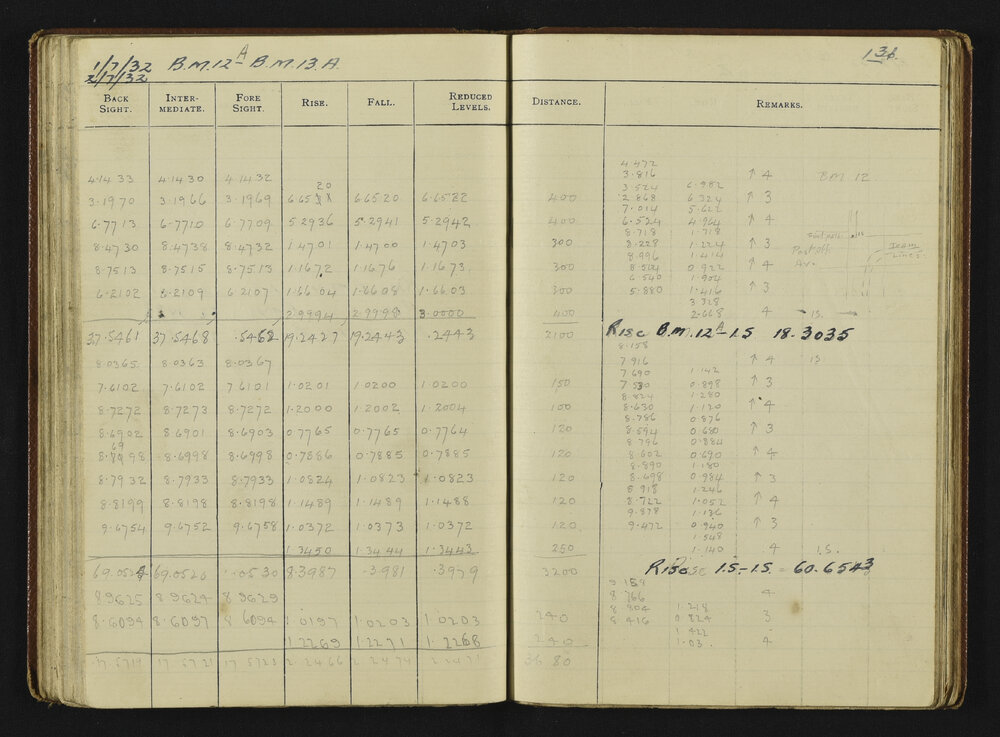 1/7/32 B.M.12A - B.M.13.A. 136.
2/7/32
BACK SIGHT. INTER-MEDIATE. FORE SIGHT. RISE. FALL. REDUCED LEVELS. DISTANCE. REMARKS.
4.472
4.1433 4.1430 4.1432 3.816 ↑ 4 BM 12
20 3.524 6.982
3.1970 3.1966 3.1969 6.65 6.6520 6.6522 400 2.868 6.324 ↑ 3
7.014 5.622
6.7713 6.7710 6.7709 5.2936 5.2941 5.2942 400 6.524 4.964 ↑ 4
8.718 1.718
8.4730 8.4738 8.4732 1.4701 1.4700 1.4703 300 8.228 1.224 ↑ 3 Post off. Tram Lines
8.996 1.414
8.7513 8.7515 8.7513 1.1672 1.1676 1.1673 300 0.922 ↑ 4 Av.
6.540 1.904
6.2102 6.2109 6.2107 1.6604 1.6608 1.6603 300 5.880 1.416 ↑ 3
3.328
2.9994 2.9998 3.0000 400 2.668 4
37.5461 37.5468 .5462 19.2427 19.2443 .2443 2100 Rise B.M.12A - I.S 18.3035
8.158
8.0365 8.0363 8.0367 7.916 ↑ 4 I.S.
7.690 1.142
7.6102 7.6102 7.6101 1.0201 1.0200 1.0200 150 0.898 ↑ 3
8.824 1.280
8.7272 8.7273 8.7272 1.2000 1.2002 1.2004 100 8.630 1.120 ↑ 4
8.786 0.876
8.6902 8.6901 8.6903 0.7765 0.7765 0.7764 120 8.594 0.680 ↑ 3
69 8.796 0.884
8.6998 8.6998 0.7886 0.7885 0.7885 120 8.602 0.690 ↑ 4
8.890 1.180
8.7932 8.7933 8.7933 1.0824 1.0823 1.0823 120 8.698 0.984 ↑ 3
8.918 1.246
8.8199 8.8198 8.8198 1.1489 1.1489 1.1488 120 8.722 1.052 ↑ 4
9.878 1.136
9.6754 9.6752 9.6758 1.0372 1.0373 1.0372 120 9.472 0.940 ↑ 3
1.548
1.3450 1.3444 1.3443 250 1.140 4 I.S.
69.0526 .0530 8.3987 .3981 .3979 3200 Rise I.S - I.S. = 60.6543
9.159
8.9625 8.9624 8.9629 8.766 4
8.804 1.218
8.6094 8.6097 6094 1.0197 1.0203 1.0203 240 8.416 0.824 3
1.422
1.2269 1.2271 1.2268 240 1.03 4
17.5719 17.5721 2.2466 2.2474 3680